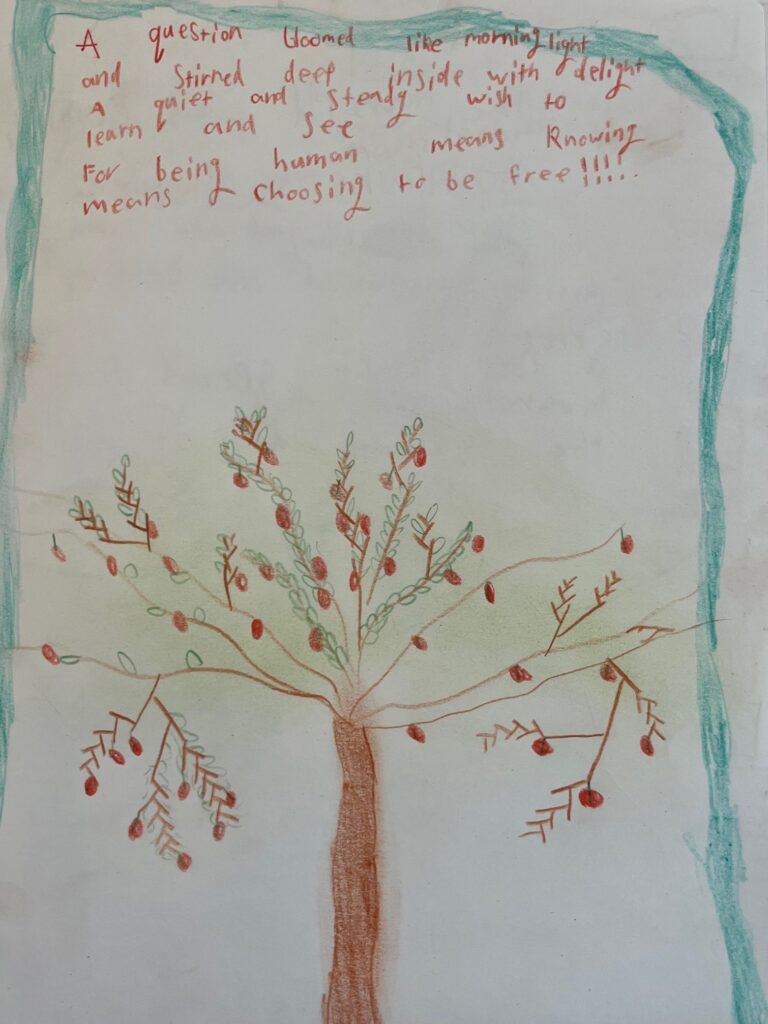 A question bloomed like morning light
and stirred deep inside with delight
A quiet and steady wish to
learn and see
For being human means knowing
means choosing to be free!!!!